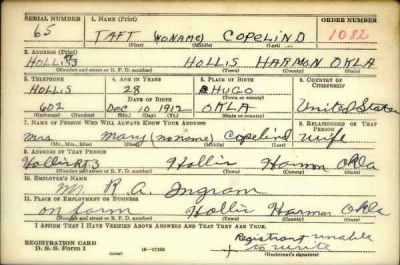 SERIAL NUMBER 1. NAME (Print) ORDER NUMBER
65 TAFT (NONAME) COPELIND 1082
(First) (Middle) (Last)
2. ADDRESS (Print)
HOLLIS HOLLIS HARMON OKLA
(Number and street or R. F. D. number) (Town) (County) (State)
3. TELEPHONE 4. AGE IN YEARS 5. PLACE OF BIRTH 6. COUNTRY OF CITIZENSHIP
HOLLIS 28 HUGO
DATE OF BIRTH (Town or county)
602 DEC 10 1912 OKLA United States
(Exchange) (Number) (Mo.) (Day) (Yr.) (State or country)
7. NAME OF PERSON WHO WILL ALWAYS KNOW YOUR ADDRESS 8. RELATIONSHIP OF THAT PERSON
Mrs Mary (noname) Copelind wife
(Mr., Mrs., Miss) (First) (Middle) (Last)
9. ADDRESS OF THAT PERSON
Hollis RT3 Hollis Harmon Okla
(Number and street or R. F. D. number) (Town) (County) (State)
10. EMPLOYER'S NAME
Mr. R. A. Ingram
11. PLACE OF EMPLOYMENT OR BUSINESS
on farm Hollis Harmon Okla
(Number and street or R. F. D. number) (Town) (County) (State)
I AFFIRM THAT I HAVE VERIFIED ABOVE ANSWERS AND THAT THEY ARE TRUE.
REGISTRATION CARD Registrant unable
D. S. S. Form 1 16—17105 to write
(Registrant's signature)